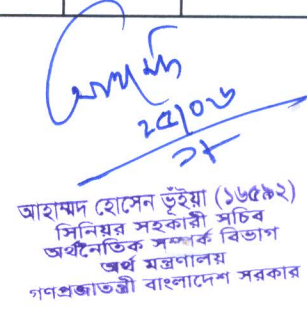 ২৫/০৬
২১
আহাম্মদ হোসেন ভূঁইয়া (১৬৫৯২)
সিনিয়র সহকারী সচিব
অর্থনৈতিক সম্পর্ক বিভাগ
অর্থ মন্ত্রণালয়
গণপ্রজাতন্ত্রী বাংলাদেশ সরকার